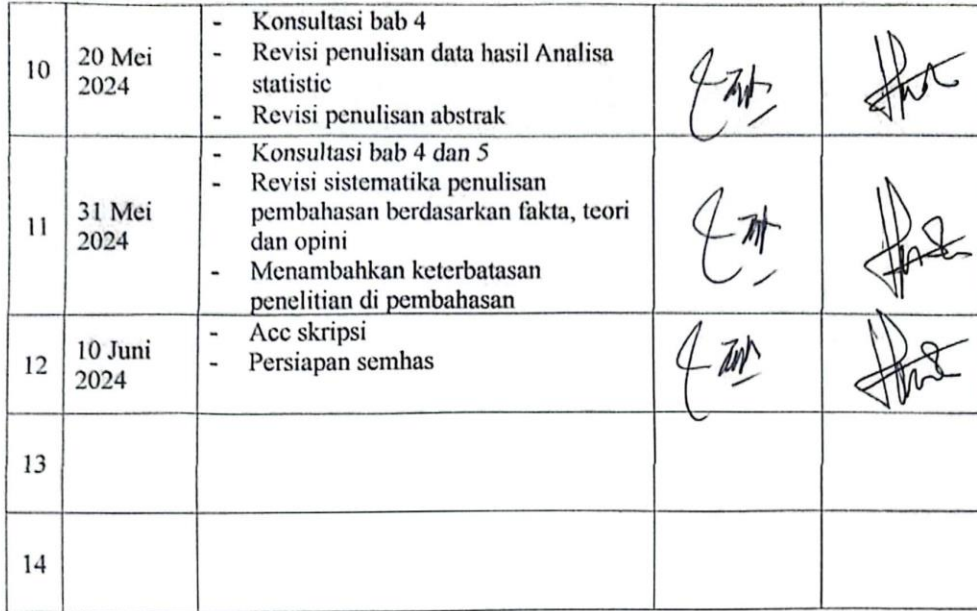 10
20 Mei
2024
- Konsultasi bab 4
- Revisi penulisan data hasil Analisa
statistic
- Revisi penulisan abstrak
11
31 Mei
2024
- Konsultasi bab 4 dan 5
- Revisi sistematika penulisan
pembahasan berdasarkan fakta, teori
dan opini
- Menambahkan keterbatasan
penelitian di pembahasan
12
10 Juni
2024
- Acc skripsi
- Persiapan semhas
13
14